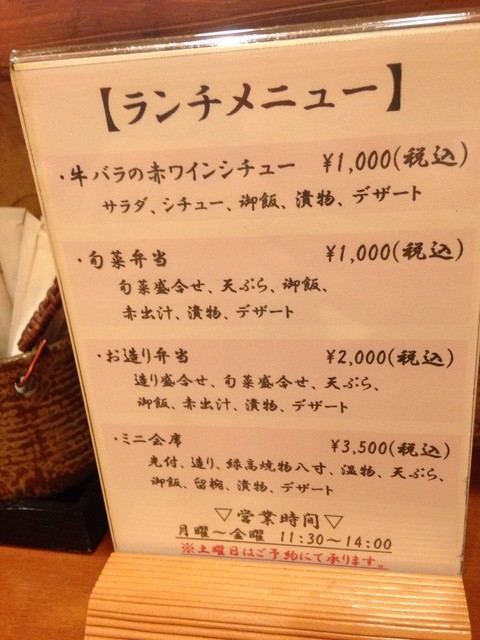 【ランチメニュー】
・牛バラの赤ワインシチュー ¥1,000(税込)
サラダ、シチュー、御飯、漬物、デザート
・旬菜弁当 ¥1,000(税込)
旬菜盛合せ、天ぷら、御飯、
赤出汁、漬物、デザート
・お造り弁当 ¥2,000(税込)
造り盛合せ、旬菜盛合せ、天ぷら、
御飯、赤出汁、漬物、デザート
・ミニ会席 ¥3,500(税込)
先付、造り、緑高焼物八寸、温物、天ぷら、
御飯、留椀、漬物、デザート
▽営業時間▽
月曜～金曜 11:30～14:00
※土曜日はご予約にて承ります。